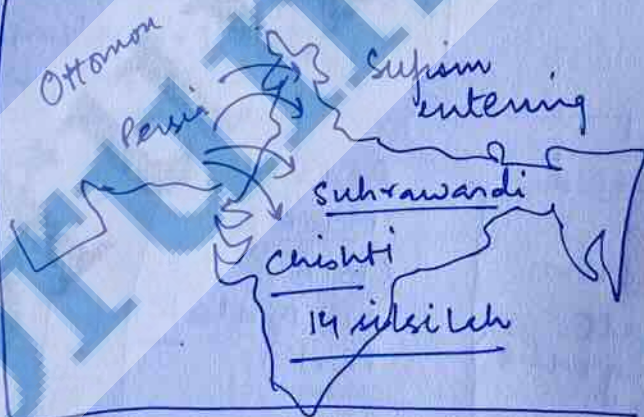 Ottoman
Persia
Sufism
entering
Suhrawardi
Chishti
14 silsilah